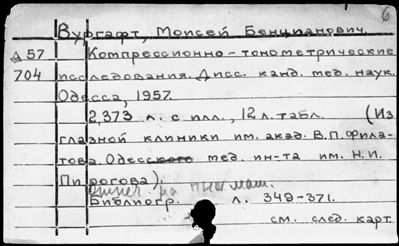 6
Вургафт, Моисей Бенцианович.
Д57 Компрессионно-тонометрические
704 исследования. Дисс. канд. мед. наук.
Одесса, 1957.
2,373 л. с илл., 12 л. табл. (Из
глазной клиники им. акад. В.П. Фила-
това. Одесского мед. ин-та им. Н.И.
Пирогова).
Библиогр. л. 349-371.
см. след. карт.